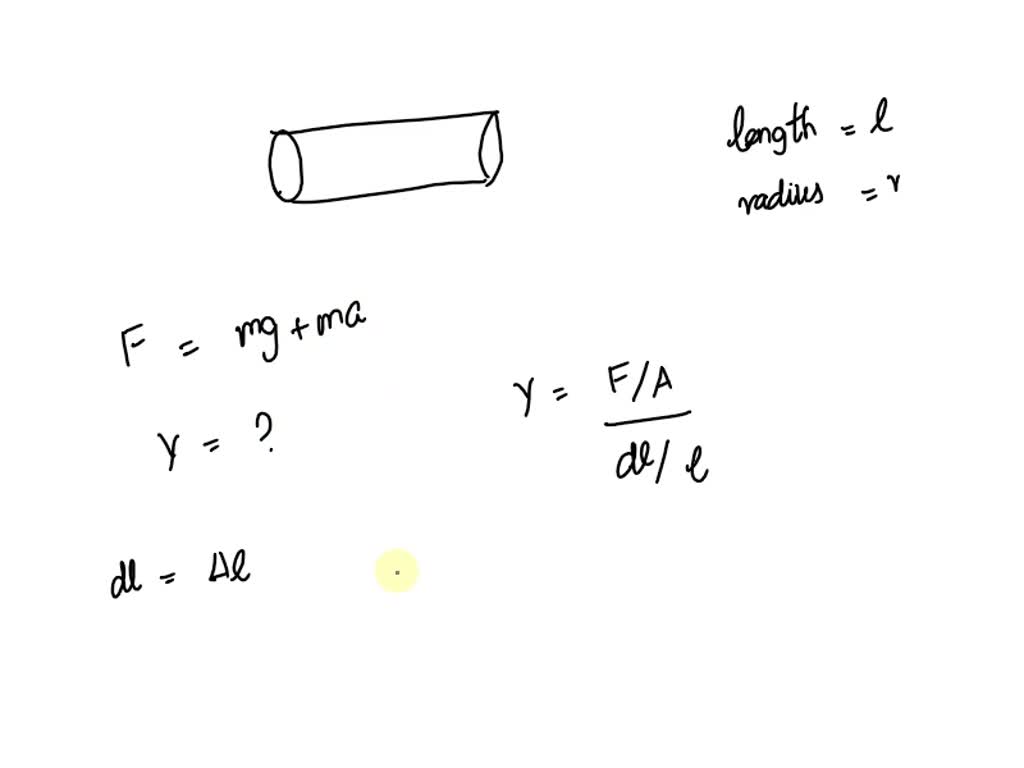 length = l
radius = r
F = mg + ma
Y = F/A
dl/l
Y = ?
dl = Δl